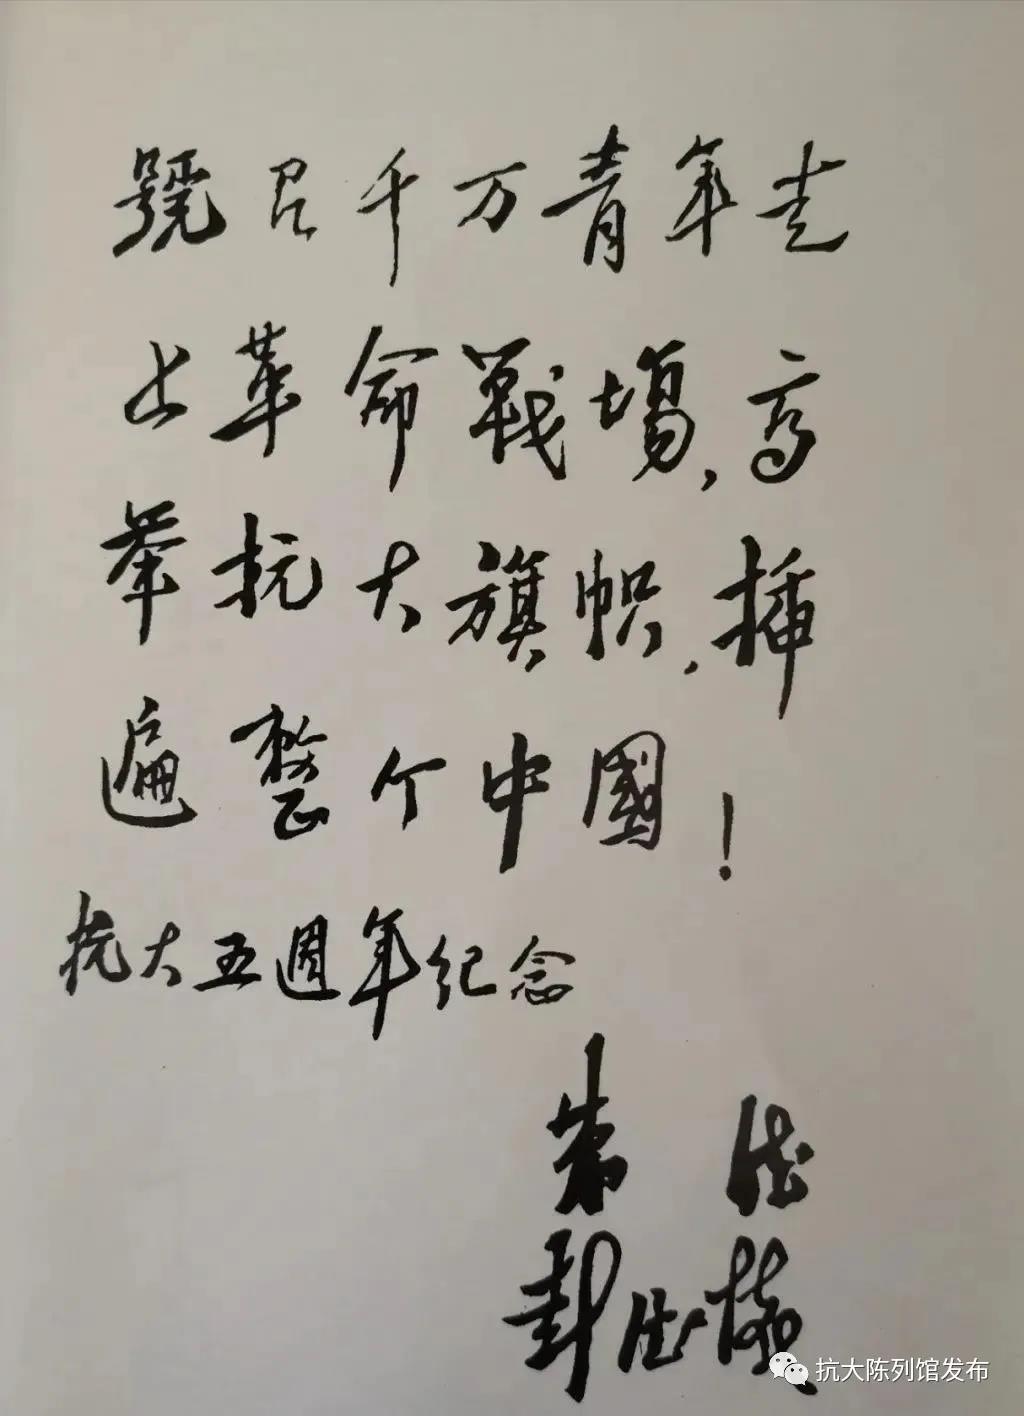 號召千万青年走
上革命戰場,高
举抗大旗帜,插
遍整个中國!
抗大五週年纪念
朱德
彭德懷
抗大陈列馆发布